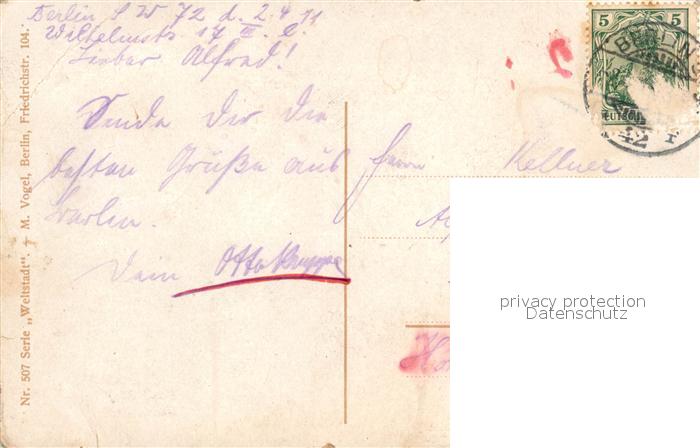 Berlin S W 72 d. 2.4 11
Wilhelmstr. 17 III. l.
Lieber Alfred!
Sende Dir die
besten Grüße aus
Berlin.
Dein Otto Kruppe
Herrn Kellner
Nr. 507 Serie „Weltstadt". – M. Vogel, Berlin, Friedrichstr. 104.
5 5
BERLIN S
42
privacy protection
Datenschutz